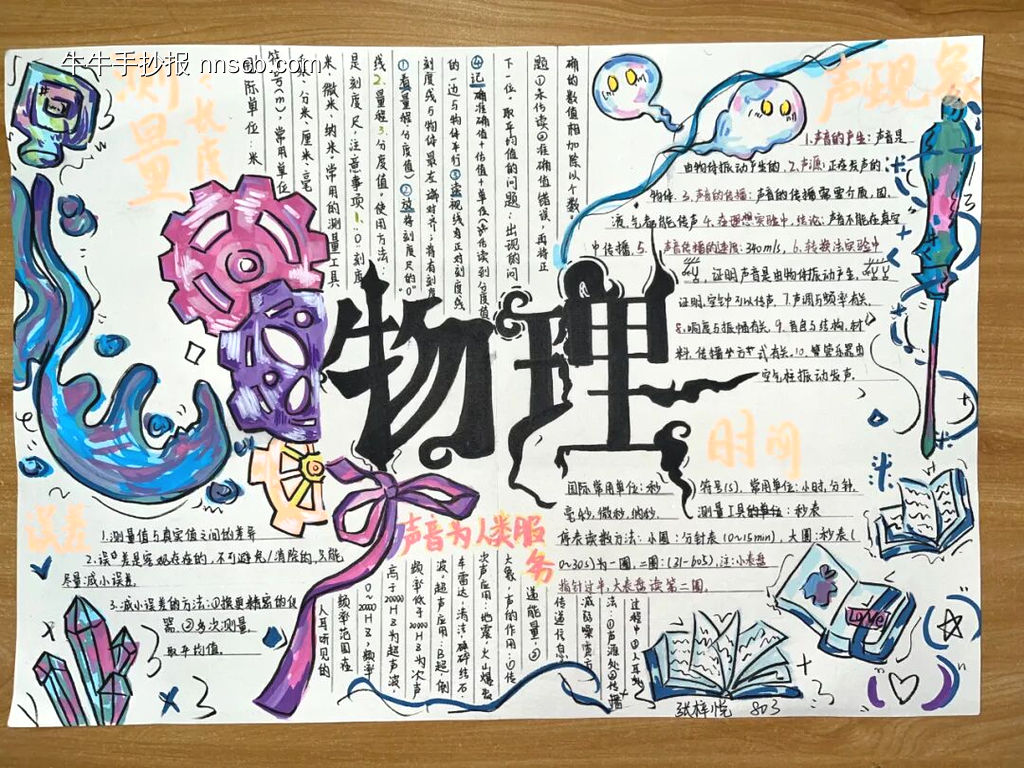 牛牛手抄报 nnscb.com
测量
长度
国际单位:米
符号(m),常用单位
千米、分米、厘米、毫
米、微米、纳米。常用的测量工具
是刻度尺,注意事项1.0刻度
线2.量程3.分度值。使用方法:
①看(量程、分度值)②放将刻度尺的"0"
刻度线与物体最左端对齐;将有刻度
的一边与物体平行③读视线要正对刻度线
④记准确值+估值+单位
下一位,取平均值的问题:出现的问
题①未估读②准确值错误,再将正
确的数值相加除以个数。
物理
声现象
1.声音的产生:声音是
由物体振动产生的 2.声源:正在发声的
物体. 3.声音的传播:声音的传播需要介质,固、
液、气都能传声 4.在理想实验中,结论:声不能在真空
中传播. 5.声音传播的速度:340m/s, 6.转换法实验中
,证明声音是由物体振动产生,
证明,空气中可以传声. 7.声调与频率有关,
8.响度与振幅有关. 9.音色与结构,材
料,传播方式有关. 10.管乐器由
空气柱振动发声.
时间
国际常用单位:秒
符号(s).常用单位:小时,分钟,
毫秒,微秒,纳秒.
测量工具的单位:秒表
停表读数方法:小圈:分针表(0~15min),大圈:秒表(
0~30s)为一圈,二圈:(31~60s),注:小表盘
指针过半,大表盘读第二圈.
误差
1.测量值与真实值之间的差异
2.误差是客观存在的,不可避免/消除的,只能
尽量减小误差.
3.减小误差的方法:①换更精密的仪
器.②多次测量,
取平均值.
声音为人类服务
人耳听见的
频率范围在
20~20000HZ,频率
高于20000HZ为超声波,
频率低于20HZ为次声
波,超声应用:B超,倒
车雷达,清洁,碎结石
次声应用:地震,火山爆发
大象,声的作用:①传
递能量②
传递信息
减弱噪声方
法:①声源处②传播
过程中③人耳处
LOVE!
张梓悦 803